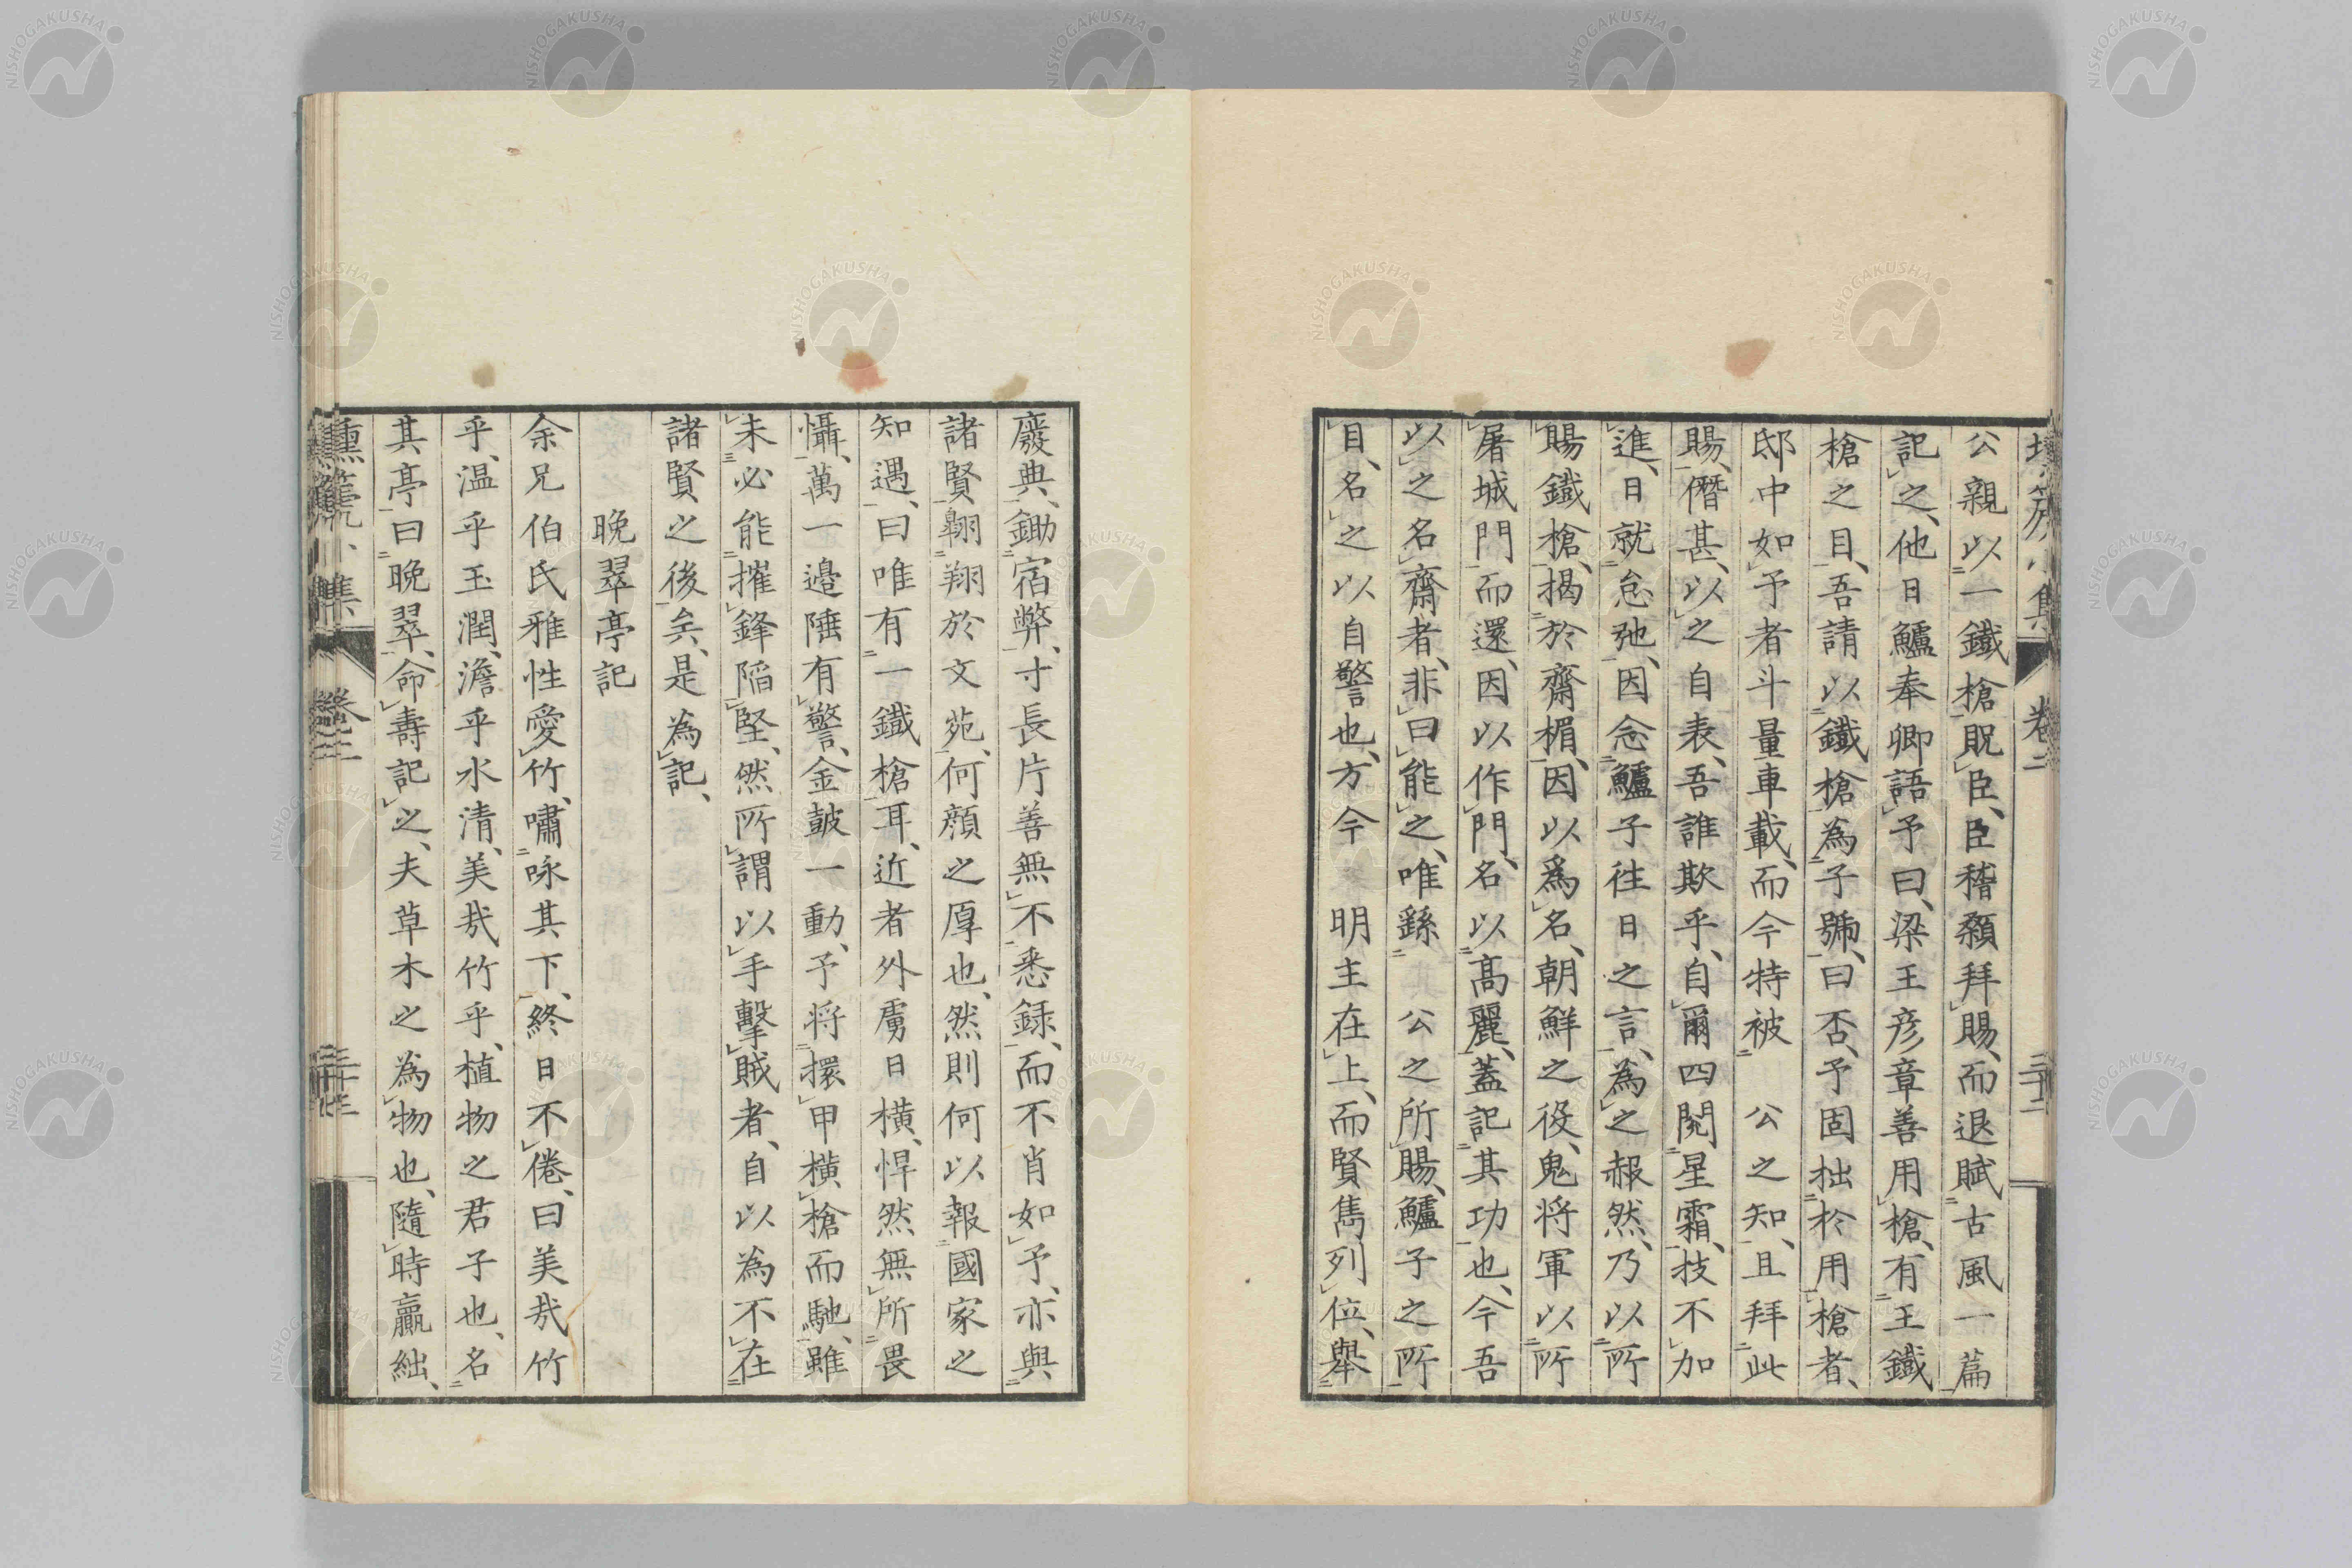 公親以一鐵槍貺臣、臣稽顙拜賜、而退賦古風一篇
記之、他日鱸奉卿語予曰、梁王彦章善用槍、有王鐵
槍之目、吾請以鐵槍為子號、曰否、予固拙於用槍者、
邸中如予者斗量車載、而今特被 公之知、且拜此
賜、僭甚、以之自表、吾誰欺乎、自爾四閱星霜、技不加
進、日就怠弛、因念鱸子往日之言、為之赧然、乃以所
賜鐵槍、揭於齋楣、因以爲名、朝鮮之役、鬼将軍以所
屠城門而還、因以作門、名以高麗、蓋記其功也、今吾
以之名齋者、非曰能之、唯繇 公之所賜、鱸子之所
目、名之以自警也、方今 明主在上、而賢雋列位、舉
廢典、鋤宿弊、寸長片善無不悉録、而不肖如予、亦與
諸賢翺翔於文苑、何顏之厚也、然則何以報國家之
知遇、曰唯有一鐵槍耳、近者外虜日橫、悍然無所畏
懾、萬一邊陲有警、金鼓一動、予将擐甲橫槍而馳、雖
未必能摧鋒陷堅、然所謂以手擊賊者、自以為不在
諸賢之後矣、是為記、
晩翠亭記
余兄伯氏雅性愛竹、嘯咏其下、終日不倦、曰美哉竹
乎、溫乎玉潤、澹乎水清、美哉竹乎、植物之君子也、名
其亭曰晩翠、命壽記之、夫草木之為物也、隨時贏絀、